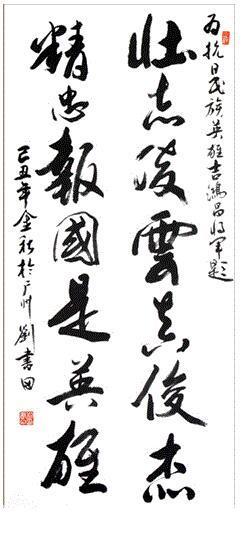 为抗日民族英雄吉鸿昌将军题
壮志凌雲真俊杰
精忠報國是英雄
己丑年金秋於广州 劉書田